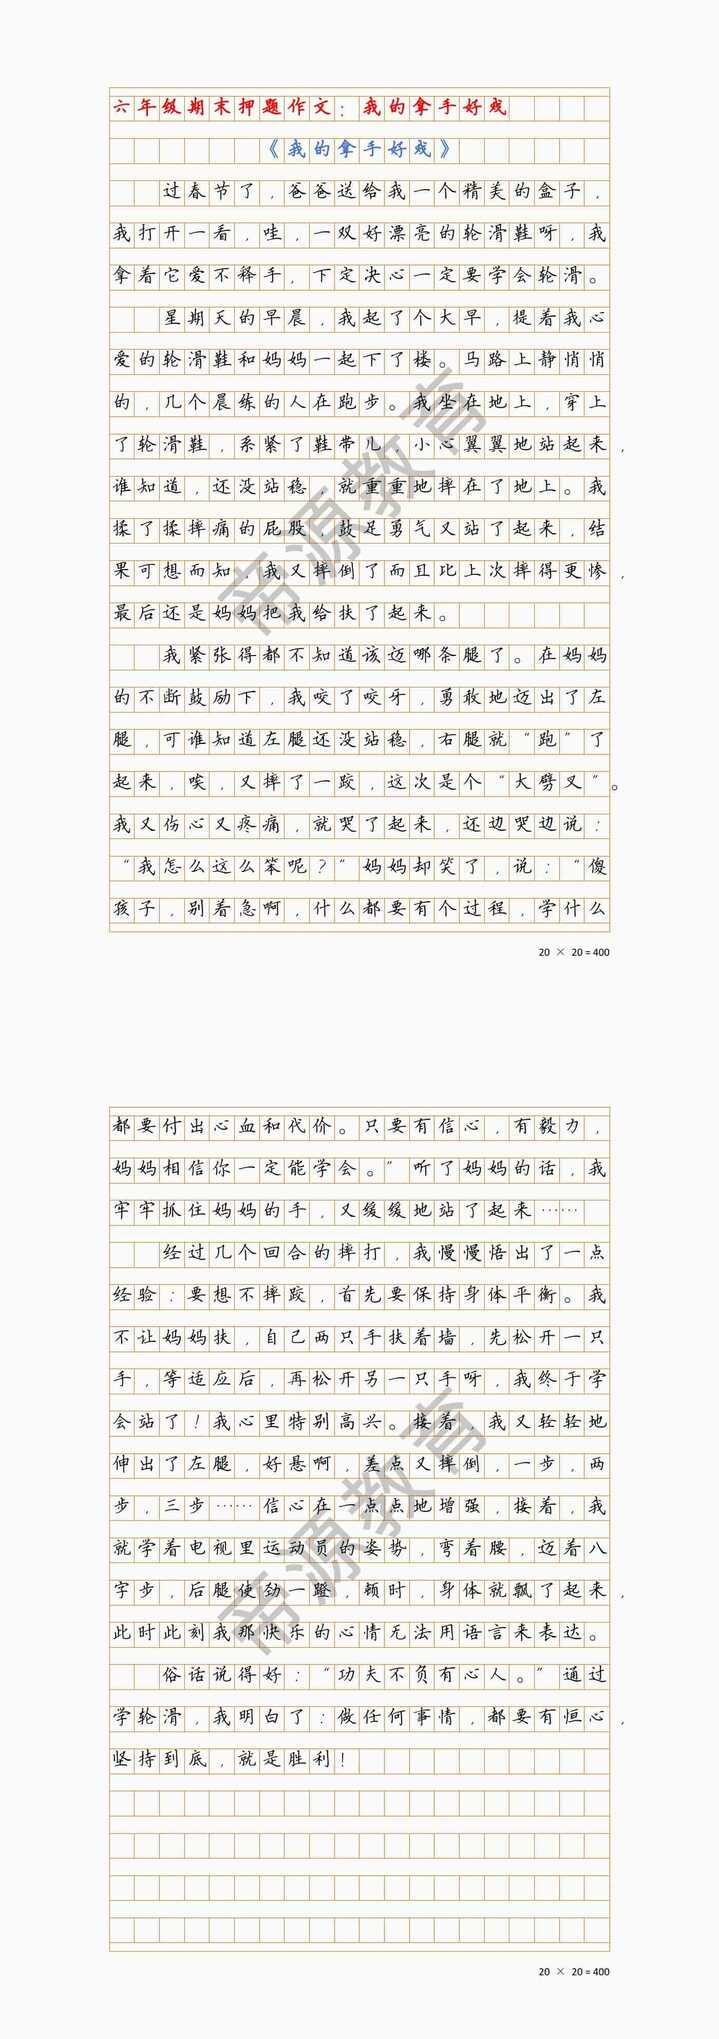 六年级期末押题作文：我的拿手好戏
《我的拿手好戏》
过春节了，爸爸送给我一个精美的盒子，
我打开一看，哇，一双好漂亮的轮滑鞋呀，我
拿着它爱不释手，下定决心一定要学会轮滑。
星期天的早晨，我起了个大早，提着我心
爱的轮滑鞋和妈妈一起下了楼。马路上静悄悄
的，几个晨练的人在跑步。我坐在地上，穿上
了轮滑鞋，系紧了鞋带儿，小心翼翼地站起来，
谁知道，还没站稳，就重重地摔在了地上。我
揉了揉摔痛的屁股，鼓足勇气又站了起来，结
果可想而知，我又摔倒了而且比上次摔得更惨，
最后还是妈妈把我给扶了起来。
我紧张得都不知道该迈哪条腿了。在妈妈
的不断鼓励下，我咬了咬牙，勇敢地迈出了左
腿，可谁知道左腿还没站稳，右腿就“跑”了
起来，唉，又摔了一跤，这次是个“大劈叉”。
我又伤心又疼痛，就哭了起来，还边哭边说：
“我怎么这么笨呢？”妈妈却笑了，说：“傻
孩子，别着急啊，什么都要有个过程，学什么
20 × 20 = 400
都要付出心血和代价。只要有信心，有毅力，
妈妈相信你一定能学会。”听了妈妈的话，我
牢牢抓住妈妈的手，又缓缓地站了起来……
经过几个回合的摔打，我慢慢悟出了一点
经验：要想不摔跤，首先要保持身体平衡。我
不让妈妈扶，自己两只手扶着墙，先松开一只
手，等适应后，再松开另一只手呀，我终于学
会站了！我心里特别高兴。接着，我又轻轻地
伸出了左腿，好悬啊，差点又摔倒，一步，两
步，三步……信心在一点点地增强，接着，我
就学着电视里运动员的姿势，弯着腰，迈着八
字步，后腿使劲一蹬，顿时，身体就飘了起来，
此时此刻我那快乐的心情无法用语言来表达。
俗话说得好：“功夫不负有心人。”通过
学轮滑，我明白了：做任何事情，都要有恒心，
坚持到底，就是胜利！
20 × 20 = 400
帝源教育
帝源教育